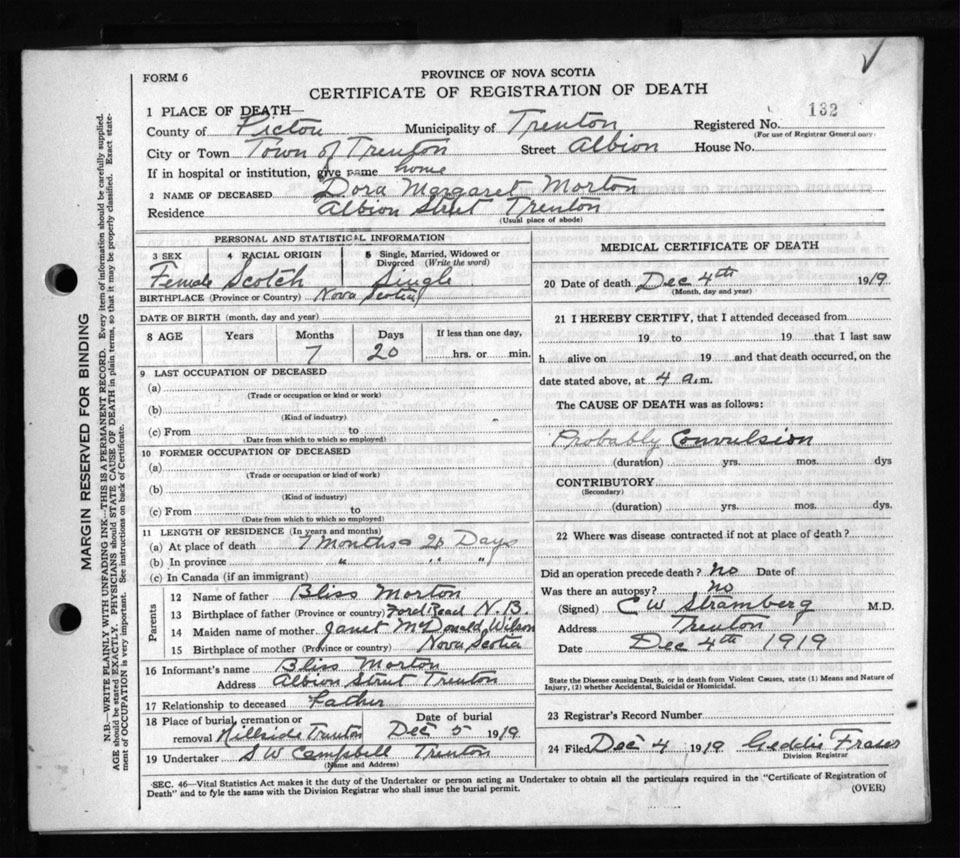 FORM 6
PROVINCE OF NOVA SCOTIA
CERTIFICATE OF REGISTRATION OF DEATH
1 PLACE OF DEATH—
County of Pictou Municipality of Trenton Registered No. 132
(For use of Registrar General only.
City or Town Town of Trenton Street Albion House No.
If in hospital or institution, give name home
2 NAME OF DECEASED Dora Margaret Morton
Residence Albion Street Trenton
(Usual place of abode)
PERSONAL AND STATISTICAL INFORMATION
3 SEX 4 RACIAL ORIGIN 5 Single, Married, Widowed or Divorced (Write the word)
Female Scotch Single
BIRTHPLACE (Province or Country) Nova Scotia
DATE OF BIRTH (month, day and year)
8 AGE Years Months Days If less than one day,
7 20 hrs. or min.
9 LAST OCCUPATION OF DECEASED
(a)
(Trade or occupation or kind or work)
(b)
(Kind of industry)
(c) From to
(Date from which to which so employed)
10 FORMER OCCUPATION OF DECEASED
(a)
(Trade or occupation or kind of work)
(b)
(Kind of industry)
(c) From to
(Date from which to which so employed)
11 LENGTH OF RESIDENCE (In years and months)
(a) At place of death 7 Months 20 Days
(b) In province " " " "
(c) In Canada (if an immigrant)
Parents
12 Name of father Bliss Morton
13 Birthplace of father (Province or country) N.B.
14 Maiden name of mother Janet McDonald Wilson
15 Birthplace of mother (Province or country) Nova Scotia
16 Informant's name Bliss Morton
Address Albion Street Trenton
17 Relationship to deceased Father
18 Place of burial, cremation or removal Hillside Trenton Date of burial Dec 5 1919
19 Undertaker S W Campbell Trenton
(Name and Address)
MEDICAL CERTIFICATE OF DEATH
20 Date of death Dec 4th 1919
(Month, day and year)
21 I HEREBY CERTIFY, that I attended deceased from
19 to 19 that I last saw
h alive on 19 and that death occurred, on the
date stated above, at 4 a.m.
The CAUSE OF DEATH was as follows:
Probably Convulsion
(duration) yrs. mos. dys
CONTRIBUTORY
(Secondary)
(duration) yrs. mos. dys.
22 Where was disease contracted if not at place of death?
Did an operation precede death? no Date of
Was there an autopsy? no
(Signed) C W Stramberg M.D.
Address Trenton
Date Dec 4th 1919
State the Disease causing Death, or in death from Violent Causes, state (1) Means and Nature of
Injury, (2) whether Accidental, Suicidal or Homicidal.
23 Registrar's Record Number
24 Filed Dec 4 1919 Geddie Fraser
Division Registrar
SEC. 46—Vital Statistics Act makes it the duty of the Undertaker or person acting as Undertaker to obtain all the particulars required in the "Certificate of Registration of
Death" and to fyle the same with the Division Registrar who shall issue the burial permit. (OVER)
MARGIN RESERVED FOR BINDING
N.B.—WRITE PLAINLY WITH UNFADING INK—THIS IS A PERMANENT RECORD. Every item of information should be carefully supplied.
AGE should be stated EXACTLY. PHYSICIANS should STATE CAUSE OF DEATH in plain terms, so that it may be properly classified. Exact statement of OCCUPATION is very important. See instructions on back of Certificate.